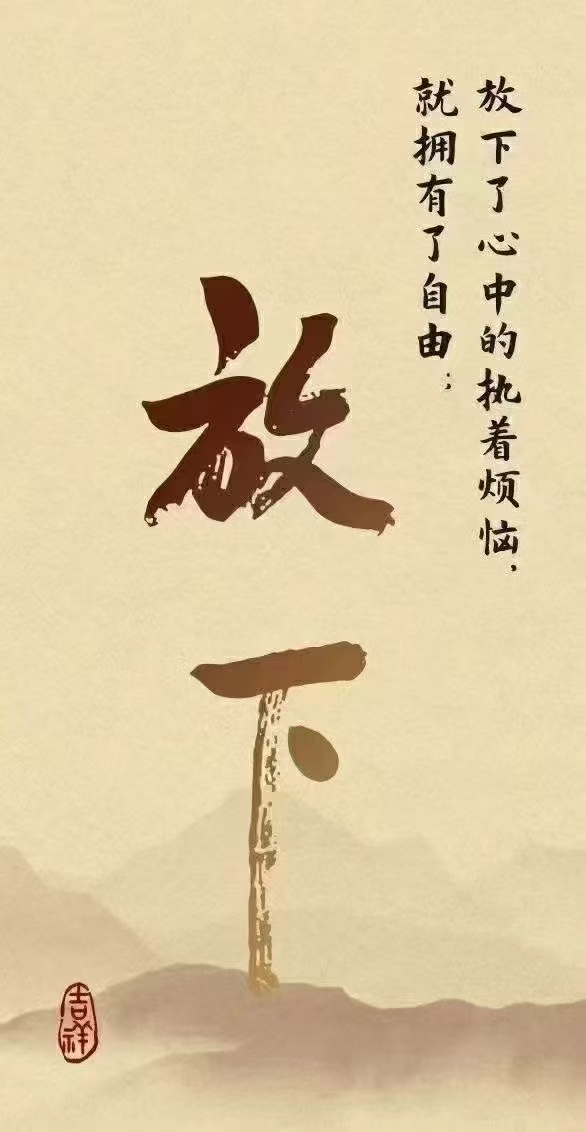 放下了心中的执着烦恼，
就拥有了自由；
放下
吉祥